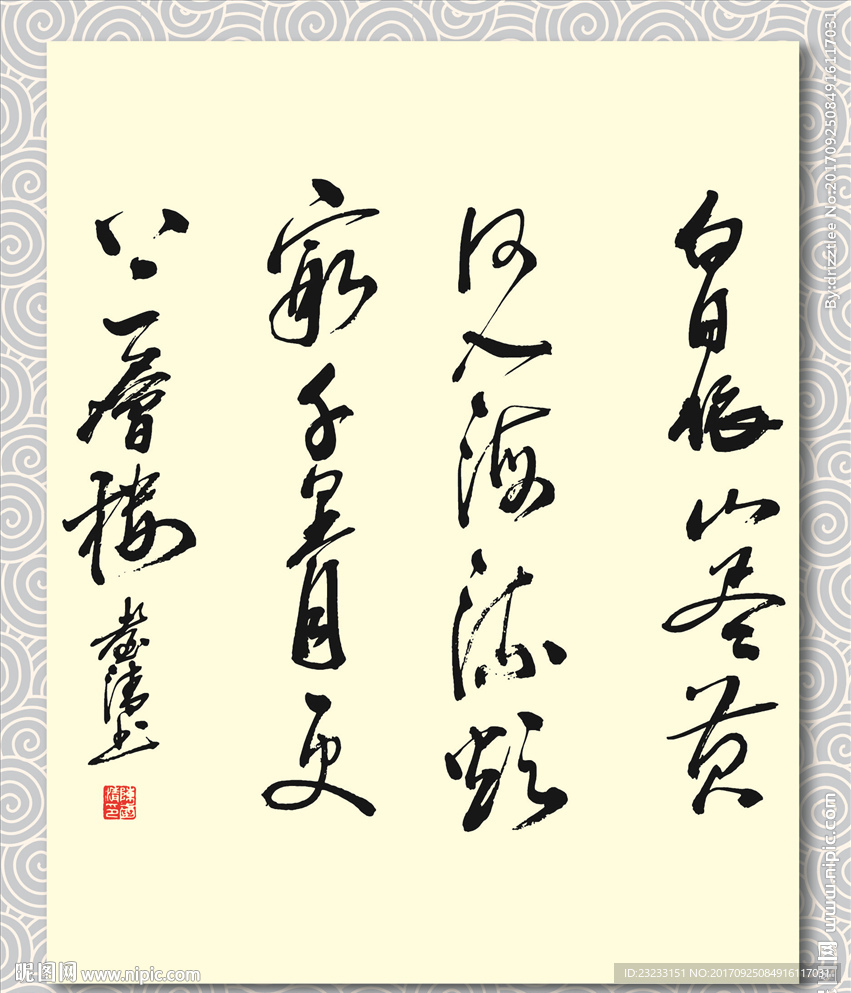 白日依山尽黄
河入海流欲
窮千里目更
上一層樓
By:drizztlee No:20170925084916117031
昵图网 www.nipic.com
昵图网 www.nipic.com
ID:23233151 NO:20170925084916117031